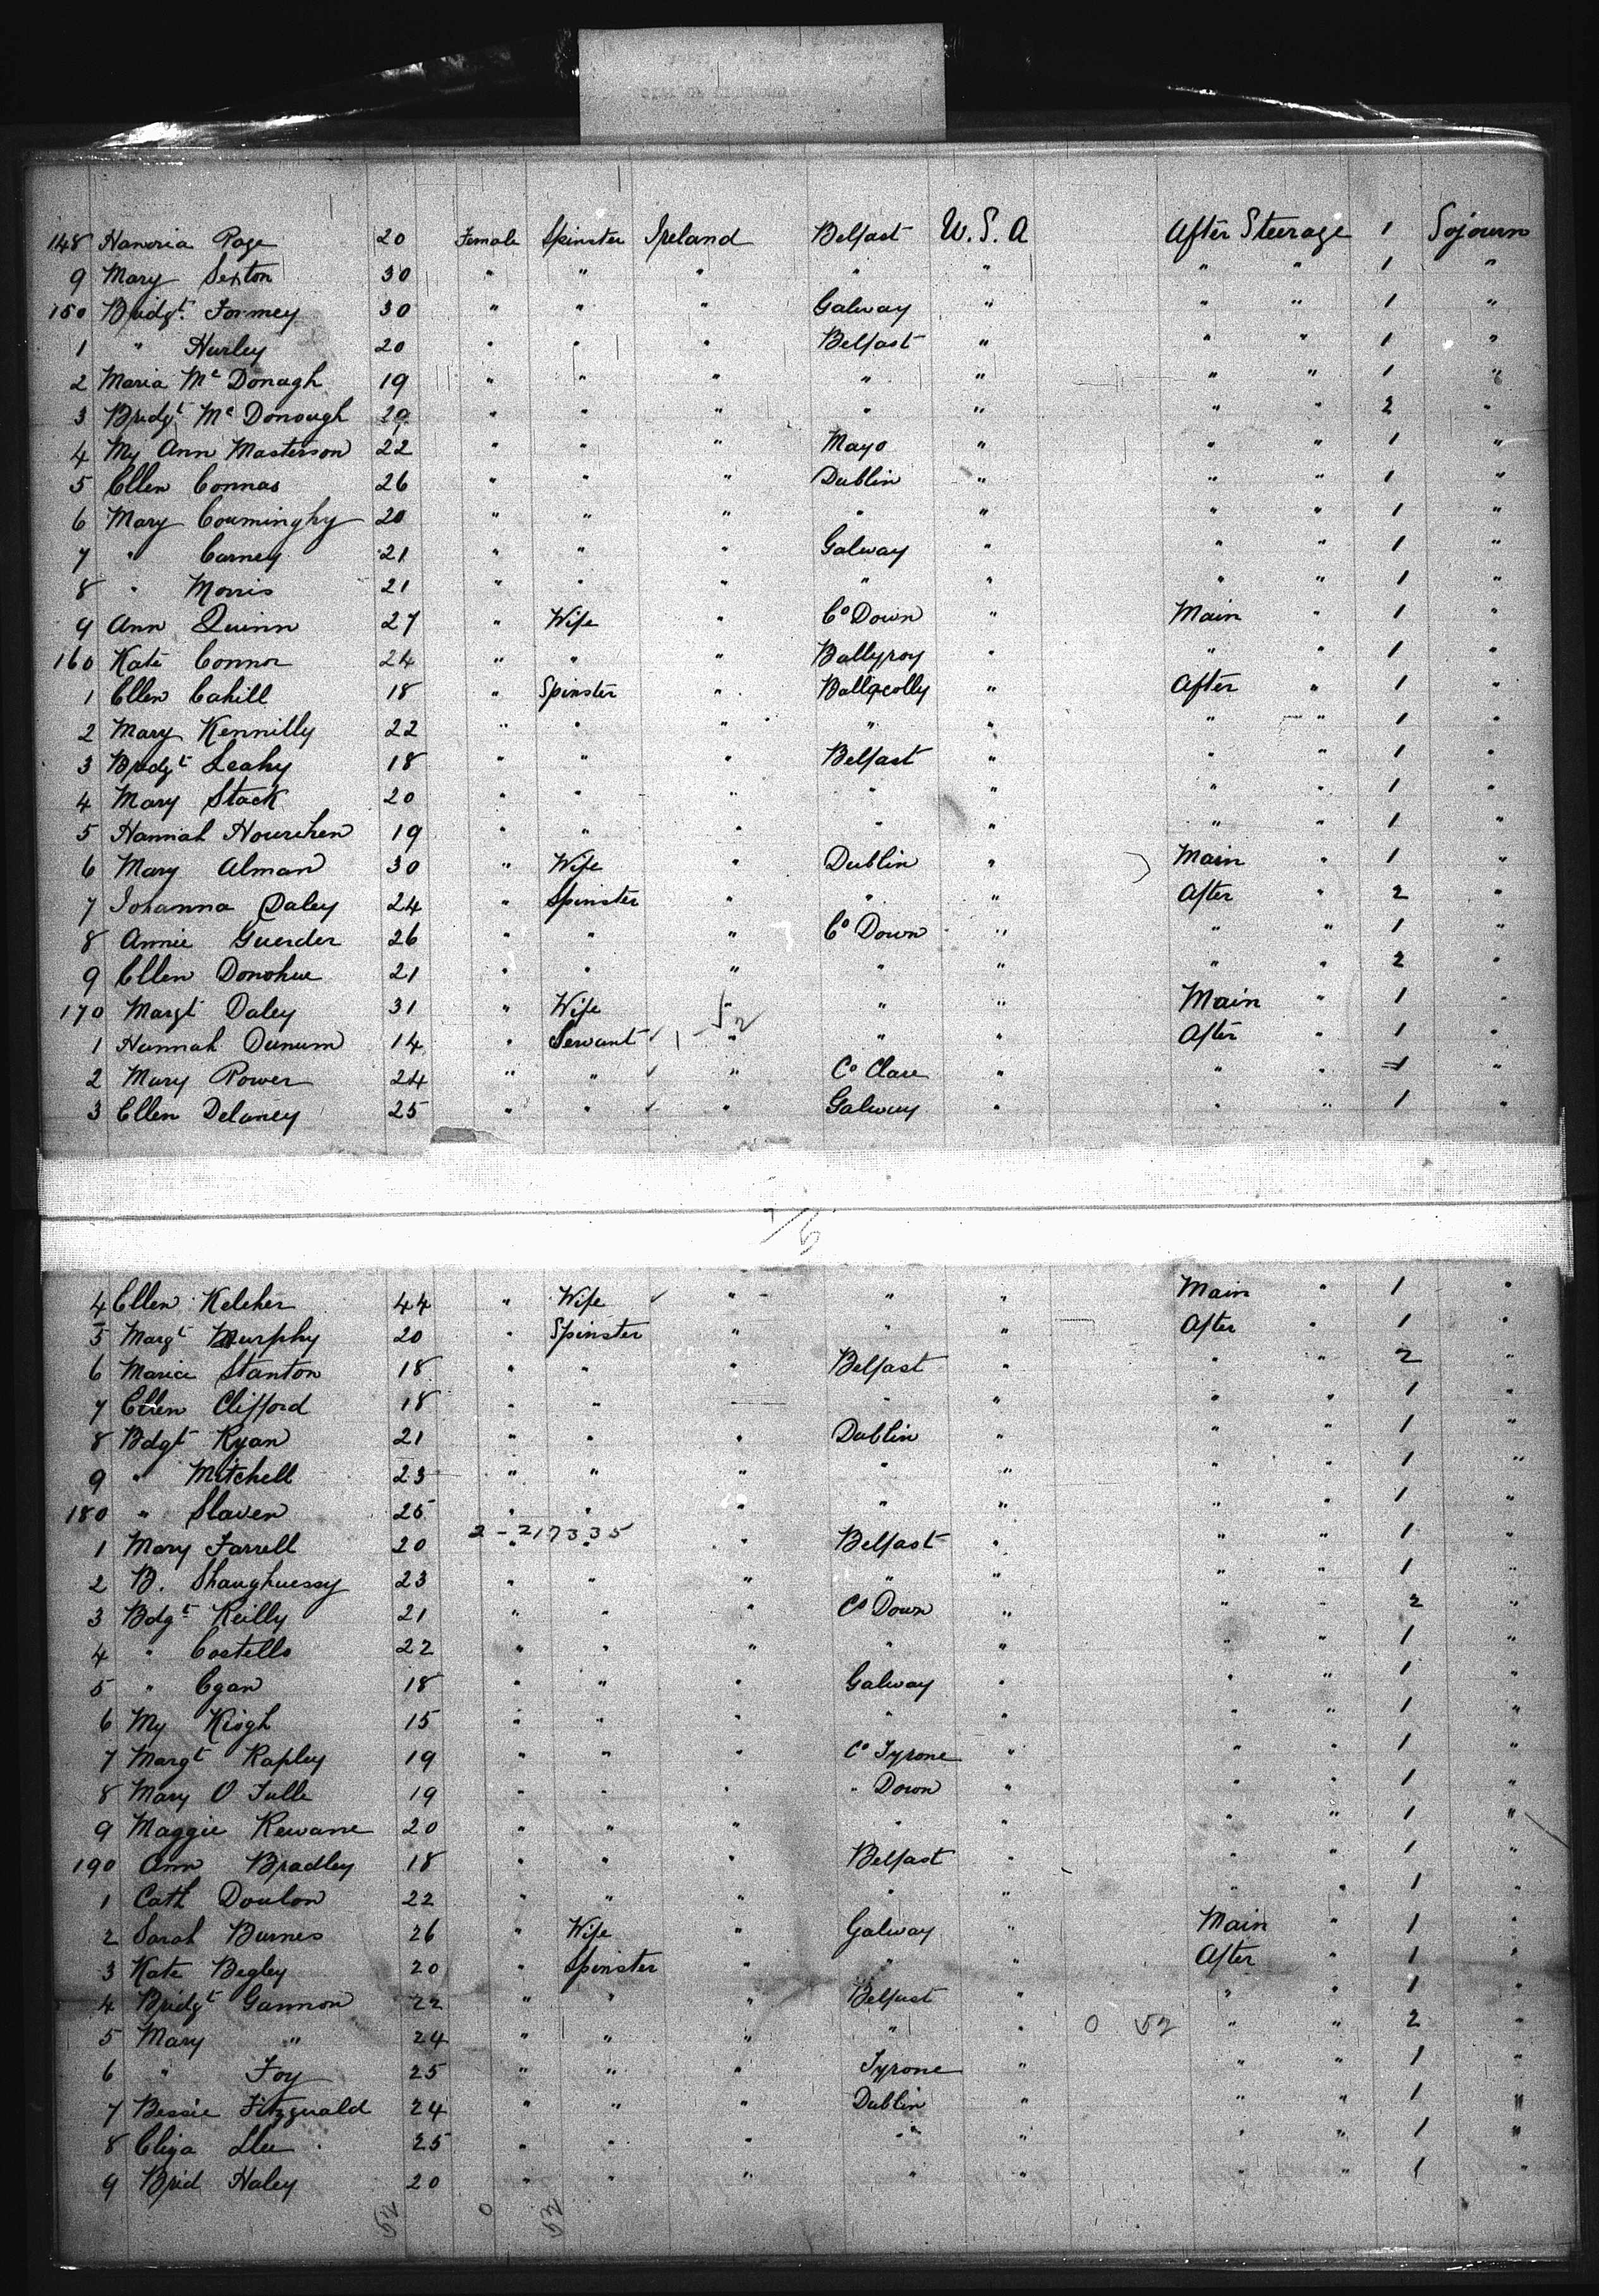 148 Hanoria Page 20 Female Spinster Ireland Belfast U.S.A After Steerage 1 Sojourn
9 Mary Sexton 30 " " " " " " " 1 "
150 Bridgt. Formey 30 " " " Galway " " " 1 "
1 " Hurley 20 " " " Belfast " " " 1 "
2 Maria Mc Donagh 19 " " " " " " " 1 "
3 Bridgt Mc Donough 29 " " " " " " " 2 "
4 My Ann Masterson 22 " " " Mayo " " " 1 "
5 Ellen Connas 26 " " " Dublin " " " 1 "
6 Mary Couminghy 20 " " " " " " " 1 "
7 " Carney 21 " " " Galway " " " 1 "
8 " Morris 21 " " " " " " " 1 "
9 Ann Quinn 27 " Wife " Co Down " Main " 1 "
160 Kate Connor 24 " " " Ballyroy " " " 1 "
1 Ellen Cahill 18 " Spinster " Ballacolly " After " 1 "
2 Mary Kennilly 22 " " " " " " " 1 "
3 Bridgt Leahy 18 " " " Belfast " " " 1 "
4 Mary Stack 20 " " " " " " " 1 "
5 Hannah Hourihen 19 " " " " " " " 1 "
6 Mary Alman 30 " Wife " Dublin " Main " 1 "
7 Johanna Daley 24 " Spinster " " " After " 2 "
8 Annie Guerder 26 " " " Co Down " " " 1 "
9 Ellen Donohue 21 " " " " " " " 2 "
170 Margt Daley 31 " Wife " " " Main " 1 "
1 Hannah Dunum 14 " Servant 1-52 " " " After " 1 "
2 Mary Power 24 " " " Co Clare " " " 1 "
3 Ellen Delaney 25 " " " Galway " " " 1 "
4 Ellen Keleher 44 " Wife " " " Main " 1 "
5 Margt Murphy 20 " Spinster " " " After " 1 "
6 Maria Stanton 18 " " " Belfast " " " 2 "
7 Ellen Clifford 18 " " " " " " 1 "
8 Bdgt Ryan 21 " " " Dublin " " " 1 "
9 " Mitchell 23 " " " " " " " 1 "
180 " Slaven 25 " " " " " " " 1 "
2-217335
1 Mary Farrell 20 " " " Belfast " " " 1 "
2 B. Shaughnessy 23 " " " " " " " 1 "
3 Bdgt Reilly 21 " " " Co Down " " " 2 "
4 " Costello 22 " " " " " " " 1 "
5 " Egan 18 " " " Galway " " " 1 "
6 My Kiogh 15 " " " " " " " 1 "
7 Margt Rapley 19 " " " Co Tyrone " " " 1 "
8 Mary O Tulle 19 " " " " Down " " " 1 "
9 Maggie Rewane 20 " " " " " " " 1 "
190 Ann Bradley 18 " " " Belfast " " " 1 "
1 Cath Doulon 22 " " " " " " " 1 "
2 Sarah Burnes 26 " Wife " Galway " Main " 1 "
3 Kate Begley 20 " Spinster " " " After " 1 "
4 Bridgt Gannon 22 " " " Belfast " " " 1 "
5 Mary " 24 " " " " " 0 52 " " 2 "
6 " Foy 25 " " " Tyrone " " " 1 "
7 Bessie Fitzguald 24 " " " Dublin " " " 1 "
8 Eliza Lee 25 " " " " " " 1 "
9 Brid Haley 20 " " " " " " " 1 "
52 0 52